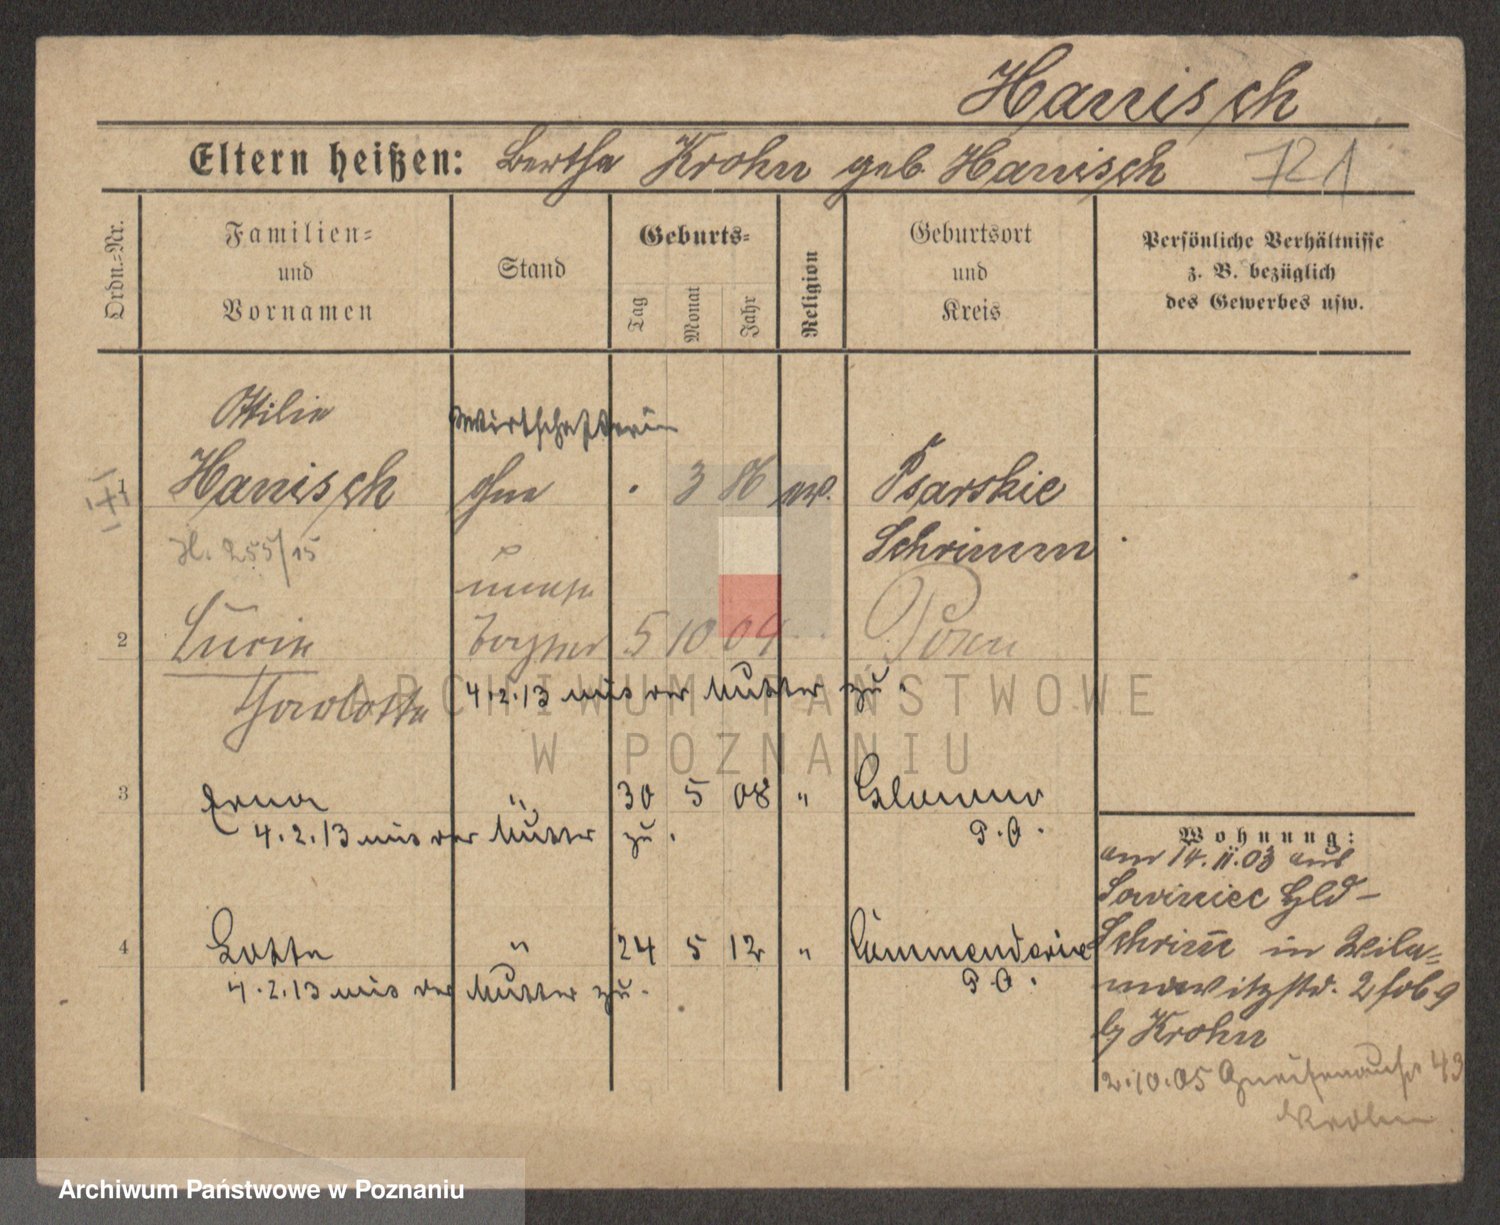 Hanisch
Eltern heißen: Bertha Krohn geb Hanisch 721
Ordn.-Nr.
Familien-
und
Vornamen
Stand
Geburts-
Tag
Monat
Jahr
Religion
Geburtsort
und
Kreis
Persönliche Verhältnisse
z. B. bezüglich
des Gewerbes usw.
Ottilie Wirthschafterin
1 Hanisch ohne . 3 86 ev. Psarskie
Schrimm
H. 255/15
unehe
2 Lucie Tochter 5 10 04 Posen
Charlotte 4.2.13 mit der Mutter zu.
3 Erna " 30 5 08 " Glowno
4.2.13 mit der Mutter zu. P.O.
4 Lotte " 24 5 12 " Commenderie
4.2.13 mit der Mutter zu. P.O.
Wohnung:
am 14.11.03 aus
Sowiniec
Schrim̄ in Wila-
mowitzstr. 2
b/ Krohn
2.10.05 Gneisenaustr 43
Krohn
ARCHIWUM PAŃSTWOWE
W POZNANIU
Archiwum Państwowe w Poznaniu